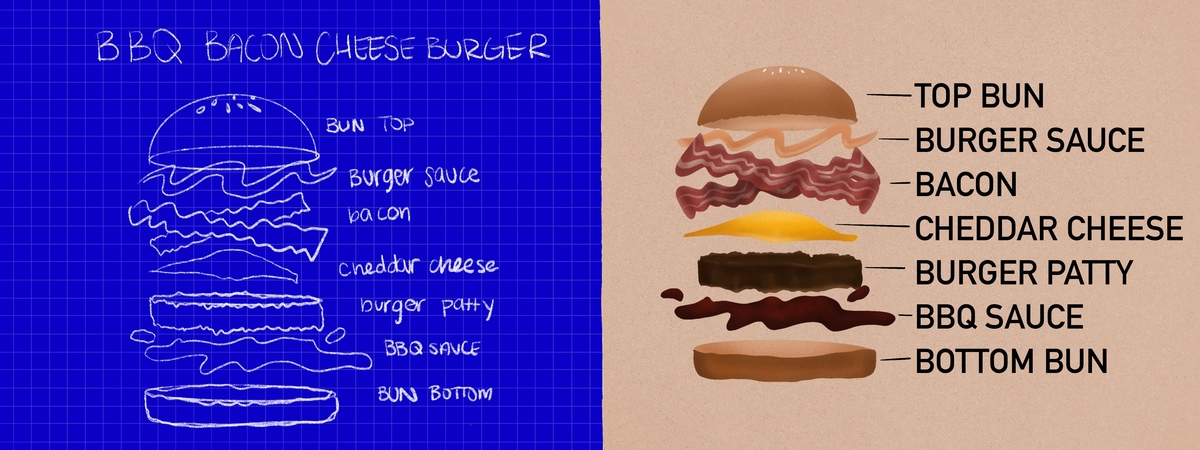 BBQ BACON CHEESE BURGER
BUN TOP
Burger sauce
bacon
cheddar cheese
burger patty
BBQ SAUCE
BUN BOTTOM
TOP BUN
BURGER SAUCE
BACON
CHEDDAR CHEESE
BURGER PATTY
BBQ SAUCE
BOTTOM BUN